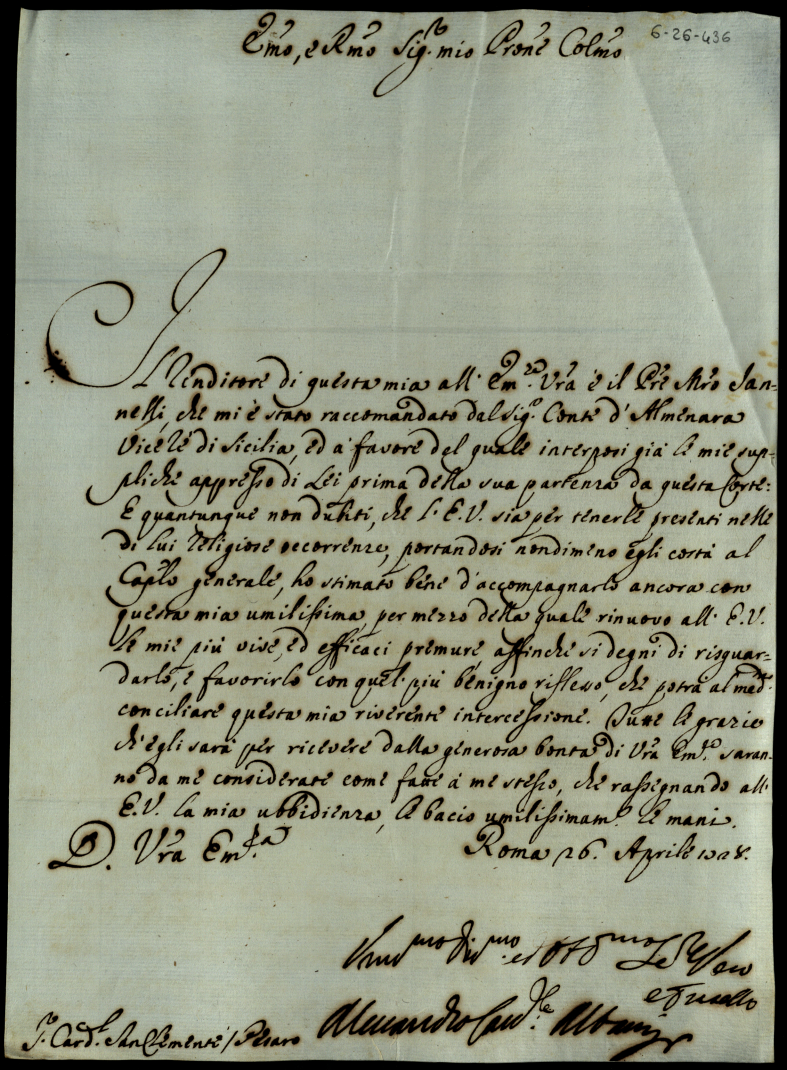 Emo, e Rmo Sig.r mio Prone Colmo
6-26-436
Il Renditore di questa mia all' Em.za Vra è il Pre Mro Jan-
nelli, che mi è stato raccomandato dal Sig.r Conte d'Almenara
Vice Rè di Sicilia, ed à favore del quale interposi già le mie sup-
pliche appresso di Lei prima della sua partenza da questa Corte:
E quantunque non dubiti, che l'E.V. sia per tenerle presenti nelle
di lui religiose occorrenze, portandosi nondimeno egli costà al
Caplo generale, ho stimato bene d'accompagnarlo ancora con
questa mia umilissima, per mezzo della quale rinuovo all' E.V.
le mie più vive, ed efficaci premure, affinche si degni di risguar-
darlo, e favorirlo con quel più benigno riflesso, che potrà al med.mo
conciliare questa mia riverente intercessione. Tutte le grazie
ch'egli sarà per ricevere dalla generosa bontà di Vra Em.za saran-
no da me considerate come fatte à me stesso, che rassegnando all'
E.V. la mia ubbidienza, le bacio umilissimam.te le mani.
D. Vra Em.za Roma 26. Aprile 1728.
Um.mo Div.mo et Obb.mo Se.re Vero
Alessandro Card.le Albani
S.r Card.l San Clemente / Pesaro